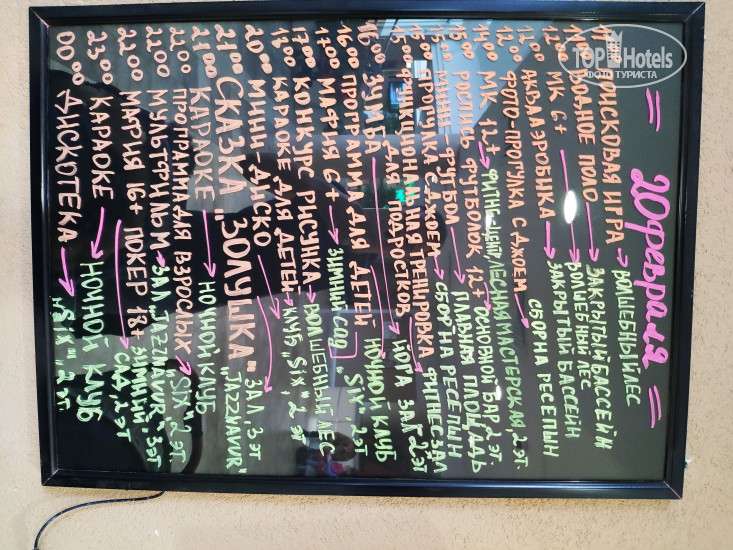 = 20 февраля =
ПОИСКОВАЯ ИГРА → ВОЛШЕБНЫЙ ЛЕС
ВОДНОЕ ПОЛО → ЗАКРЫТЫЙ БАССЕЙН
МК 6+ → ВОЛШЕБНЫЙ ЛЕС
12:00 АКВААЭРОБИКА → ЗАКРЫТЫЙ БАССЕЙН
12:00 ФОТО-ПРОГУЛКА С ДЖОЕМ → СБОР НА РЕСЕПШН
14:00 МК 12+ → ЛЕСНАЯ МАСТЕРСКАЯ, 2 ЭТ.
15:00 РОСПИСЬ ФУТБОЛОК 12+ ОСНОВНОЙ БАР, 2 ЭТ.
15:00 МИНИ-ФУТБОЛ → ГЛАВНАЯ ПЛОЩАДЬ
15:00 ПРОГУЛКА С ДЖОЕМ → СБОР НА РЕСЕПШН
15:00 ФУНКЦИОНАЛЬНАЯ ТРЕНИРОВКА ДЛЯ ПОДРОСТКОВ → ФИТНЕС ЗАЛ
16:00 ЗУМБА → ЙОГА ЗАЛ 2 ЭТ
16:00 ПРОГРАММА ДЛЯ ДЕТЕЙ НОЧНОЙ КЛУБ "SIX" 2 ЭТ
17:00 МАФИЯ 6+ → ЗИМНИЙ САД
17:00 КОНКУРС РИСУНКА → ВОЛШЕБНЫЙ ЛЕС
18:00 КАРАОКЕ ДЛЯ ДЕТЕЙ → КЛУБ "SIX", 2 ЭТ
20:00 МИНИ-ДИСКО → ЗАЛ, 3 ЭТ
21:00 СКАЗКА "ЗОЛУШКА" "JAZZMAUR"
21:00 КАРАОКЕ → НОЧНОЙ КЛУБ
22:00 ПРОГРАММА ДЛЯ ВЗРОСЛЫХ → "SIX" 2 ЭТ.
22:00 МУЛЬТФИЛЬМ → ЗАЛ "JAZZMAUR" 3 ЭТ
22:00 МАФИЯ 16+ ПОКЕР 18+ → ЗИМНИЙ САД, 2 ЭТ
23:00 КАРАОКЕ → НОЧНОЙ КЛУБ
00:00 ДИСКОТЕКА → "SIX", 2 ЭТ.
TOPHotels
ФОТО ТУРИСТА